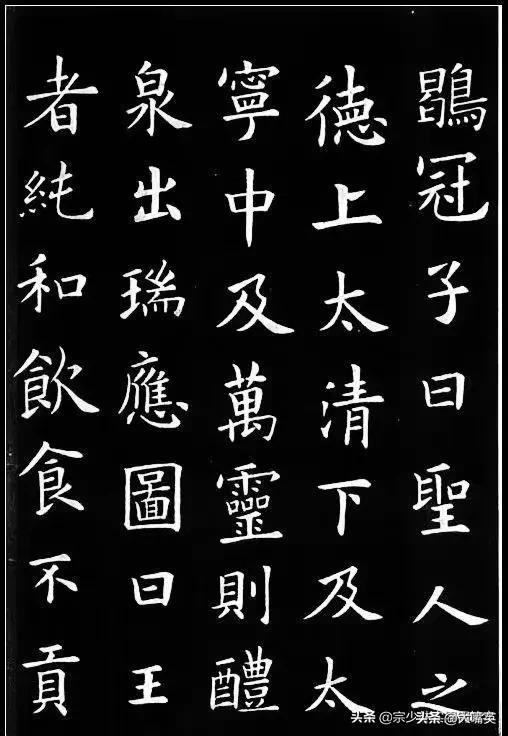 鶡冠子曰聖人之
徳上太清下及太
寧中及萬靈則醴
泉出瑞應圖曰王
者純和飲食不貢
头条 @宗少 头条